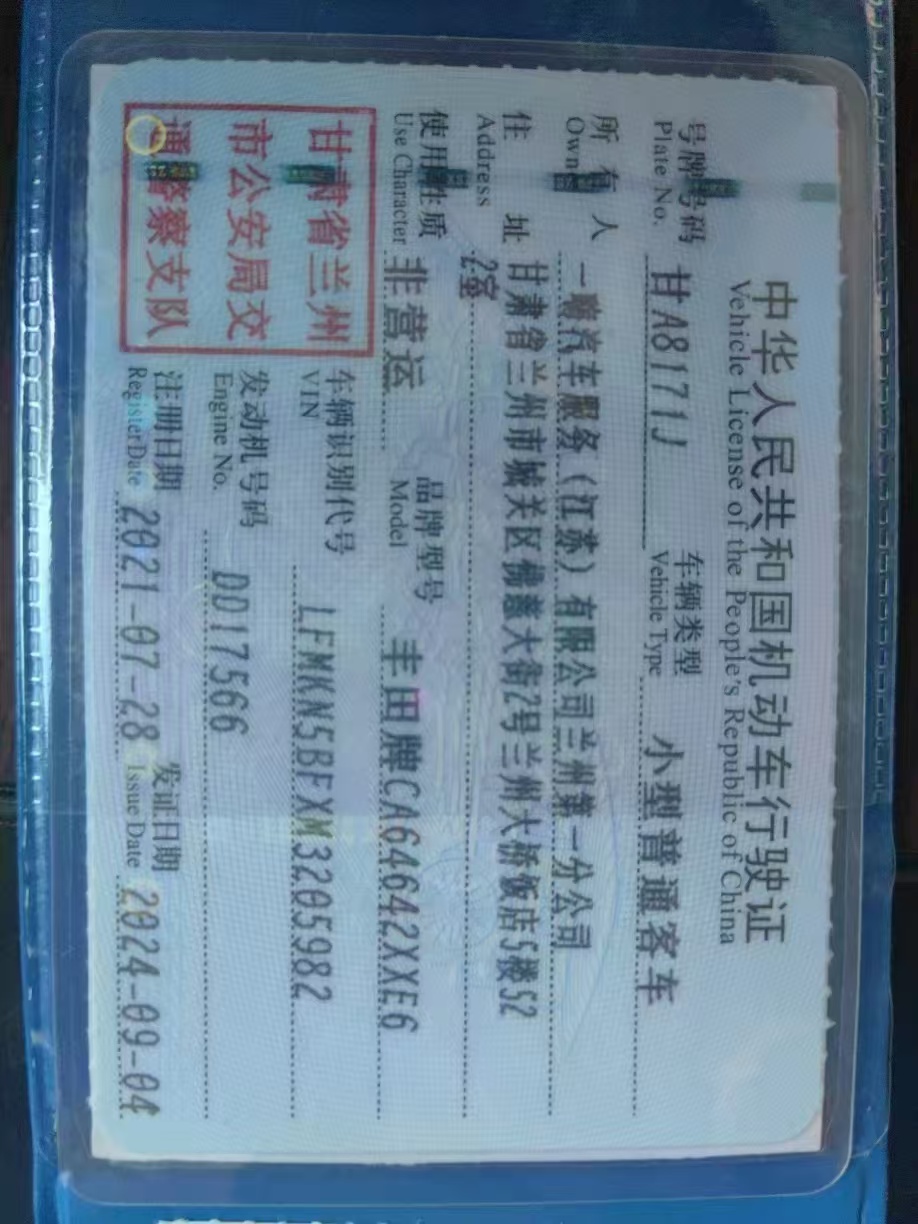 中华人民共和国机动车行驶证
Vehicle License of the People's Republic of China
号牌号码 甘A8171J 车辆类型 小型普通客车
Plate No. Vehicle Type
所有人 一嗨汽车服务(江苏)有限公司兰州第一分公司
Owner
住址 甘肃省兰州市城关区佛慈大街2号兰州大桥饭店5楼52
Address 2室
使用性质 非营运 品牌型号 丰田牌CA64642XXE6
Use Character Model
甘肃省兰州
市公安局交
通警察支队
车辆识别代号 LFMKN5BFXM3205982
VIN
发动机号码 DD17566
Engine No.
注册日期 2021-07-28 发证日期 2024-09-04
Register Date Issue Date